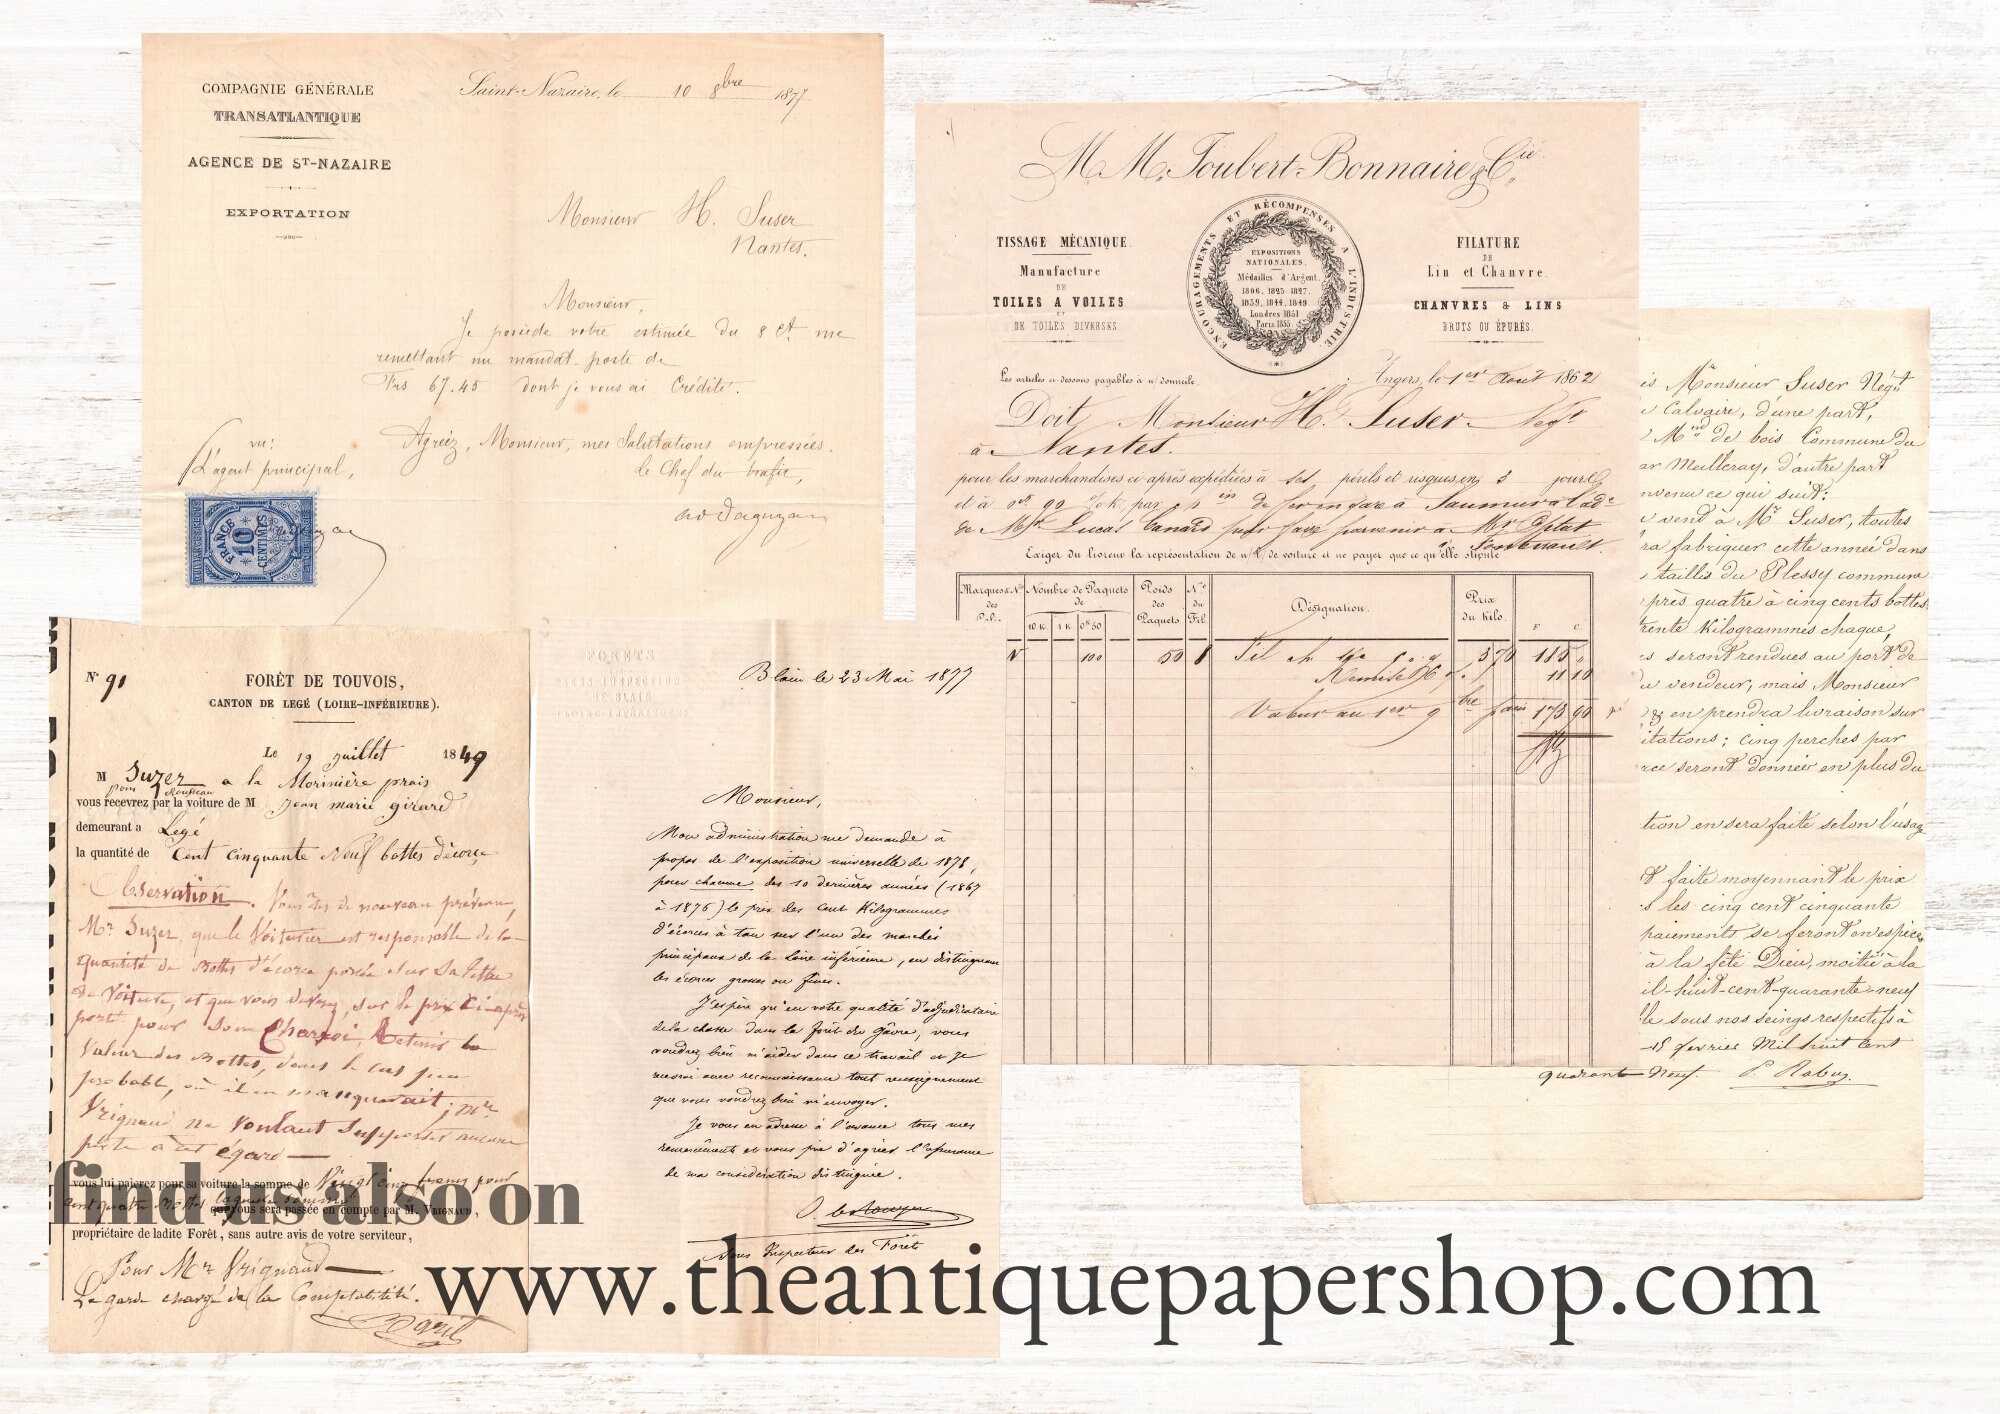 COMPAGNIE GÉNÉRALE
TRANSATLANTIQUE
AGENCE DE ST-NAZAIRE
EXPORTATION
Saint-Nazaire, le 10 8bre 1877
Monsieur H. Suser
Nantes.
Monsieur,
Je possède votre estimée du 8 ct. me
remettant un mandat-poste de
Frs 67.45 dont je vous ai Crédité.
Agréez, Monsieur, mes Salutations empressées.
vu:
L'agent principal,
le Chef du trafic,
FRANCE
10
CENTIMES
M.M. Joubert-Bonnaire & Cie.
TISSAGE MÉCANIQUE.
Manufacture
DE
TOILES A VOILES
ET
DE TOILES DIVERSES
ENCOURAGEMENTS ET RÉCOMPENSES A L'INDUSTRIE
EXPOSITIONS
NATIONALES.
Médailles d'Argent.
1806, 1823 1827.
1839, 1844, 1849
Londres 1851
Paris 1855
FILATURE
DE
Lin et Chanvre.
CHANVRES & LINS
BRUTS OU ÉPURÉS.
Les articles ci-dessous payables à n/ domicile.
Angers, le 1er Août 1862
Doit Monsieur H. Suser Negt
à Nantes.
pour les marchandises ci-après expédiées à ses périls et risques, en 3 jours
Exiger du livreur la représentation de n/ L/ de voiture et ne payer que ce qu'elle stipule
Marques & Nos
des
Nombre de Paquets
de
10 K. 1 K. 0k50
Poids
des
Paquets
No
du
Fil
Désignation.
Prix
du Kilo.
F C.
N 100 50 8 Fil 370 185
Remise 6% 11 10
Valeur au 1er 9bre 173 90
is Monsieur Suser Négt
Calvaire, d'une part,
Md de bois Commune du
ar Meilleray, d'autre part
nvenu ce qui suit:
vend à Mr Suser, toutes
ra fabriquer cette année dans
taillis du Plessy commune
près quatre à cinq cents bottes
rente Kilogrammes chaque,
seront rendues au port de
u vendeur, mais Monsieur
en prendra livraison sur
itations; cinq perches par
rce seront données en plus du
tion en sera faite selon l'usage
t faite moyennant le prix
s les cinq cent cinquante
paiements se feront en espèces
à la fête Dieu, moitié à la
il-huit-cent-quarante-neuf
le sous nos seings respectifs à
15 février Mil huit cent
quarante neuf.
No 91
FORÊT DE TOUVOIS,
CANTON DE LEGÉ (LOIRE-INFÉRIEURE).
Le 19 juillet 1849
M Suzer a la Morinière prais
pour Rousseau
vous recevrez par la voiture de M Jean marie girard
demeurant a Legé
la quantité de Cent cinquante Neuf bottes d'écorce
Observation. Vous êtes de nouveau prévenu,
Mr. Suzer, que le Voiturier est responsable de la
quantité de Bottes d'écorce portée sur sa lettre
de Voiture, et que vous devez, sur le prix ci-après
porté pour son Charroi, Retenir la
Valeur des Bottes, dans le cas peu
probable, où il en manquerait; Mr
Vrignaud ne voulant supporter aucune
perte à cet égard
vous lui paierez pour sa voiture la somme de Vingt cinq francs pour
que vous sera passée en compte par M. VRIGNAUD,
propriétaire de ladite Forêt, sans autre avis de votre serviteur,
Pour Mr Vrignaud
Le garde chargé de la Comptabilité.
FORETS
Blain le 23 Mai 1877
Monsieur,
Mon administration me demande à
propos de l'exposition universelle de 1878,
pour chacune des 10 dernières années (1867
à 1876) le prix des cent Kilogrammes
d'écorces à tan sur l'un des marchés
principaux de la Loire inférieure, en distinguant
les écorces grosses ou fines.
J'espère qu'en votre qualité d'adjudicataire
de la chasse dans la forêt du Gâvre, vous
voudrez bien m'aider dans ce travail et je
recevrai avec reconnaissance tout renseignement
que vous voudrez bien m'envoyer.
Je vous en adresse à l'avance tous mes
remerciements et vous prie d'agréer l'assurance
de ma considération distinguée.
Sous Inspecteur des Forêts
find us also on
www.theantiquepapershop.com